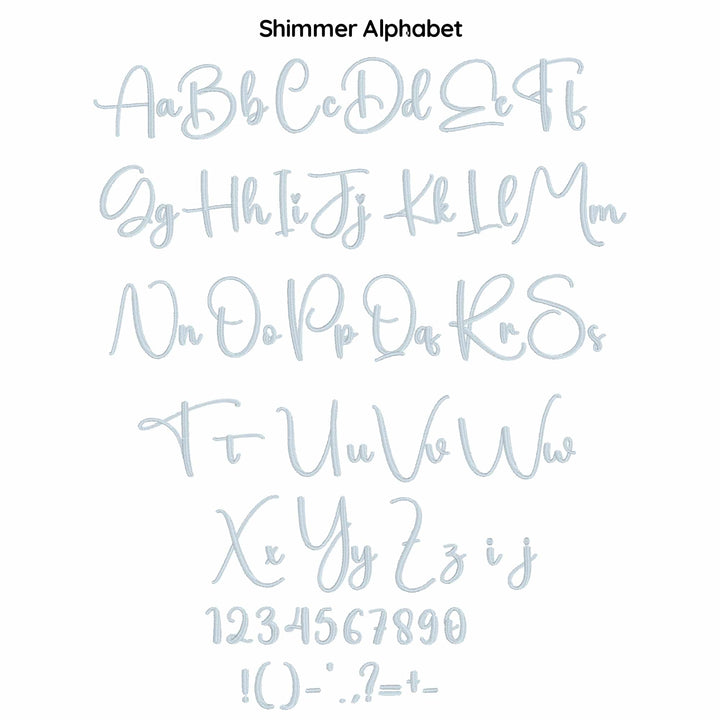 Shimmer Alphabet
Aa Bb Cc Dd Ee Ff
Gg Hh Ii Jj Kk Ll Mm
Nn Oo Pp Qq Rr Ss
Tt Uu Vv Ww
Xx Yy Zz i j
1234567890
!()-:.,?=+-